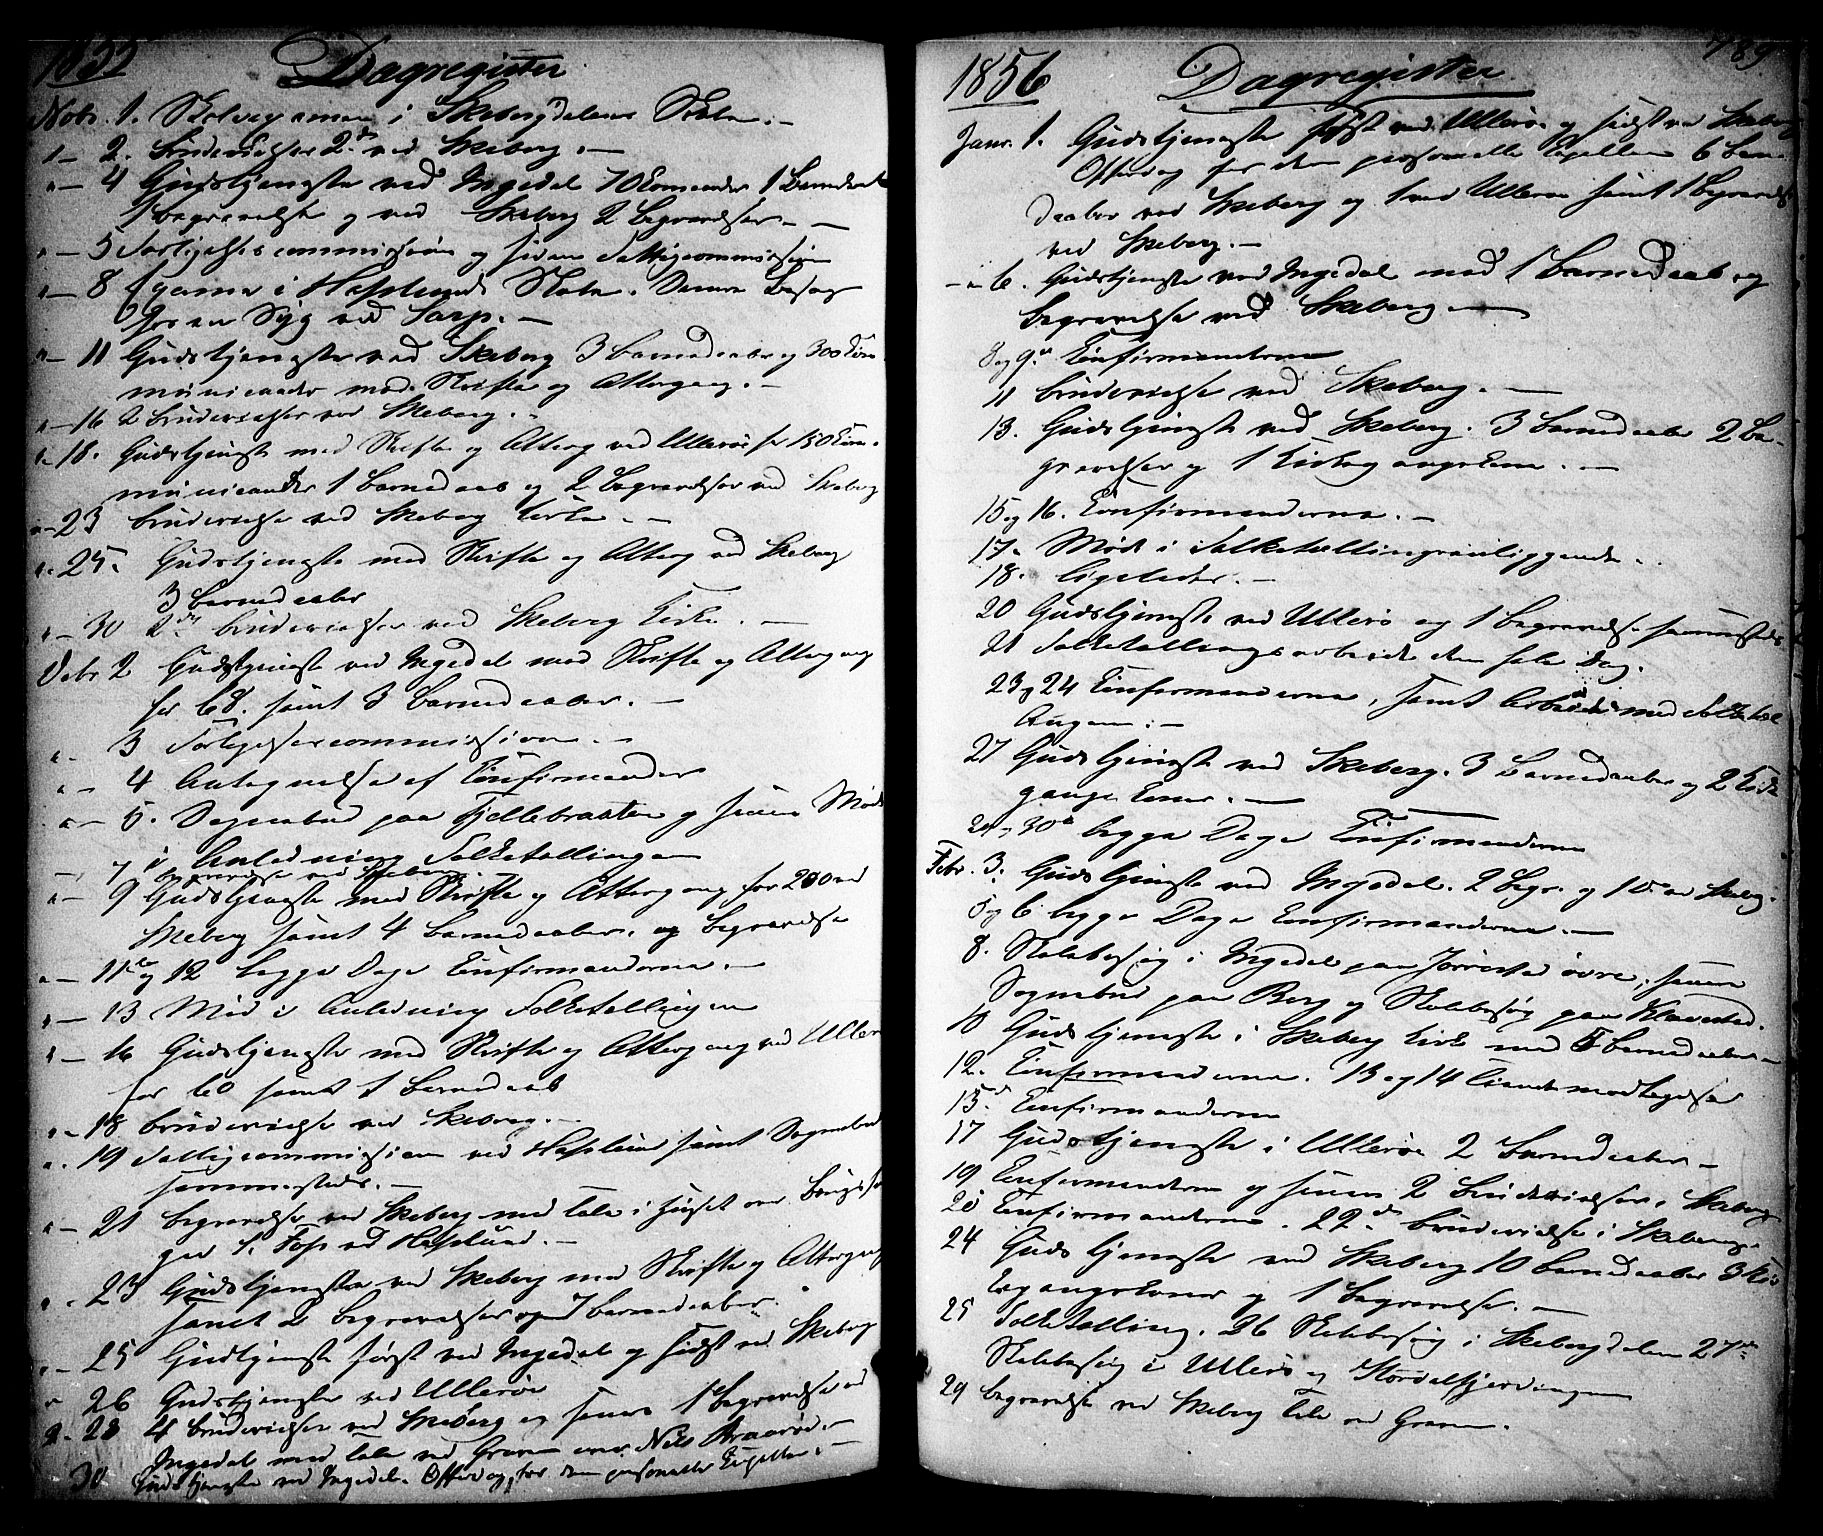 1855 Dagregister
Novbr. 1. Skoleexamen i Skebergdalens Skole. —
" — 2. Brudevielser 2de ved Skeberg. —
" — 4 Gudstjeneste ved Ingedal 70 Comunder 1 Barnedaab
1 Begravelse og ved Skeberg 2 Begravelser. —
" — 5 Forligelsescommission og siden Fattigcommission
" — 8 Examen i Hafslunds Skole. Samme Besøg
hos en Syg ved Sarp. —
" — 11 Gudstjeneste ved Skeberg 3 Barnedaaber og 300 Com-
municanter med Skrifte og Altergang. —
" — 16 2 Brudevielser ved Skeberg. —
" — 18. Gudstjeneste med Skrifte og Alterg ved Ullerøe for 150 Com-
municanter 1 Barnedaab og 2 Begravelser ved Skeberg
" — 23 Brudevielse ved Skeberg Kirke. —
" — 25. Gudstjeneste med Skrifte og Alterg ved Skeberg
3 Barnedaaber
" — 30 2de Brudevielser ved Skeberg Kirke. —
Debr 2 Gudstjeneste ved Ingedal med Skrifte og Altergang
for 68. samt 3 Barnedaaber. —
" — 3 Forligelsescommission. —
" — 4 Antegnelse af Confirmander
" — 5. Sognebud paa Fjellebraaten og senere Møde
i Anledning Folketællingen
— 7 Begravelse ved Skeberg
" — 9 Gudstjeneste med Skrifte og Altergang for 200 ved
Skeberg samt 4 Barnedaaber. og Begravelse
" — 11te og 12 begge Dage Confirmanderne. —
" — 13 Mød i Anledning Folketællingen
" — 16 Gudstjeneste med Skrifte og Altergang ved Ullerø
for 60 samt 1 Barnedaab
" — 18 Brudevielse ved Skeberg. —
" . 19 Fattigcommission ved Hafslund samt Sognebud
sammesteds. —
" — 21 Begravelse ved Skeberg med Tale i Huset over
ved Hafslund. —
" . 23 Gudstjeneste ved Skeberg med Skrifte og Altergang
samt 2 Begravelser og 7 Barnedaaber.
" — 25 Gudstjeneste først ved Ingedal og sidst ved Skeberg
" 26 Gudstjeneste ved Ullerøe
" . 28 4 Brudevielser ved Skeberg og senere 1 Begravelse ved
Ingedal med Tale ved Graven over Nils
30 Gudstjeneste ved Ingedal. Offerdag for den personelle Capellan. —
789
1856 Dagregister
Janr. 1. Gudstjeneste først ved Ullerøe og sidst ved Skeberg
Offerdag for den personelle Capellan 6 Barne-
daaber ved Skeberg og 1 ved Ullerøe samt 1 Begravelse
ved Skeberg. —
— " 6. Gudstjeneste ved Ingedal med 1 Barnedaab og
Begravelse ved Skeberg. —
8 og 9de Confirmanderne
11 Brudevielse ved Skeberg. —
13. Gudstjeneste ved Skeberg. 3 Barnedaaber 2 Be-
gravelser og 1 Kirkegangskone. —
15 og 16. Confirmanderne. —
17. Møde i Folketællingsanliggende.
18. ligeledes. —
20 Gudstjeneste ved Ullerø og 1 Begravelse sammesteds
21 Folketællingsarbeide den hele Dag.
23 og 24 Confirmanderne, samt Arbeide med Folketæl-
lingen. —
27 Gudstjeneste ved Skeberg. 3 Barnedaaber og 2 Kirke
gangskoner. —
29 og 30te begge Dage Confirmanderne
Febr. 3. Gudstjeneste ved Ingedal. 2 Begr. og 1 Do ved Skebg.
5 og 6 begge Dage Confirmanderne. —
8. Skolebesøg i Ingedal paa Jørrestad øvre, senere
Sognebud paa Berg og Skolebesøg paa Klavestad.
10 Gudstjeneste i Skeberg Kirke med 5 Barnedaaber
12. Confirmanderne. 13 og 14
15de Confirmanderne
17 Gudstjeneste i Ullerøe 2 Barnedaaber —
19 Confirmanderne og senere 2 Brudevielser i Skeberg
20 Confirmanderne. 22de Brudevielse i Skeberg.
24 Gudstjeneste ved Skeberg 10 Barnedaaber 3 Kir-
kegangskoner og 1 Begravelse. —
25 Folketælling. 26 Skolebesøg i Skebergdalen 27de
Skolebesøg i Ullerø og Hordelfjerdingen
29 Begravelse ved Skeberg Tale ved Graven.